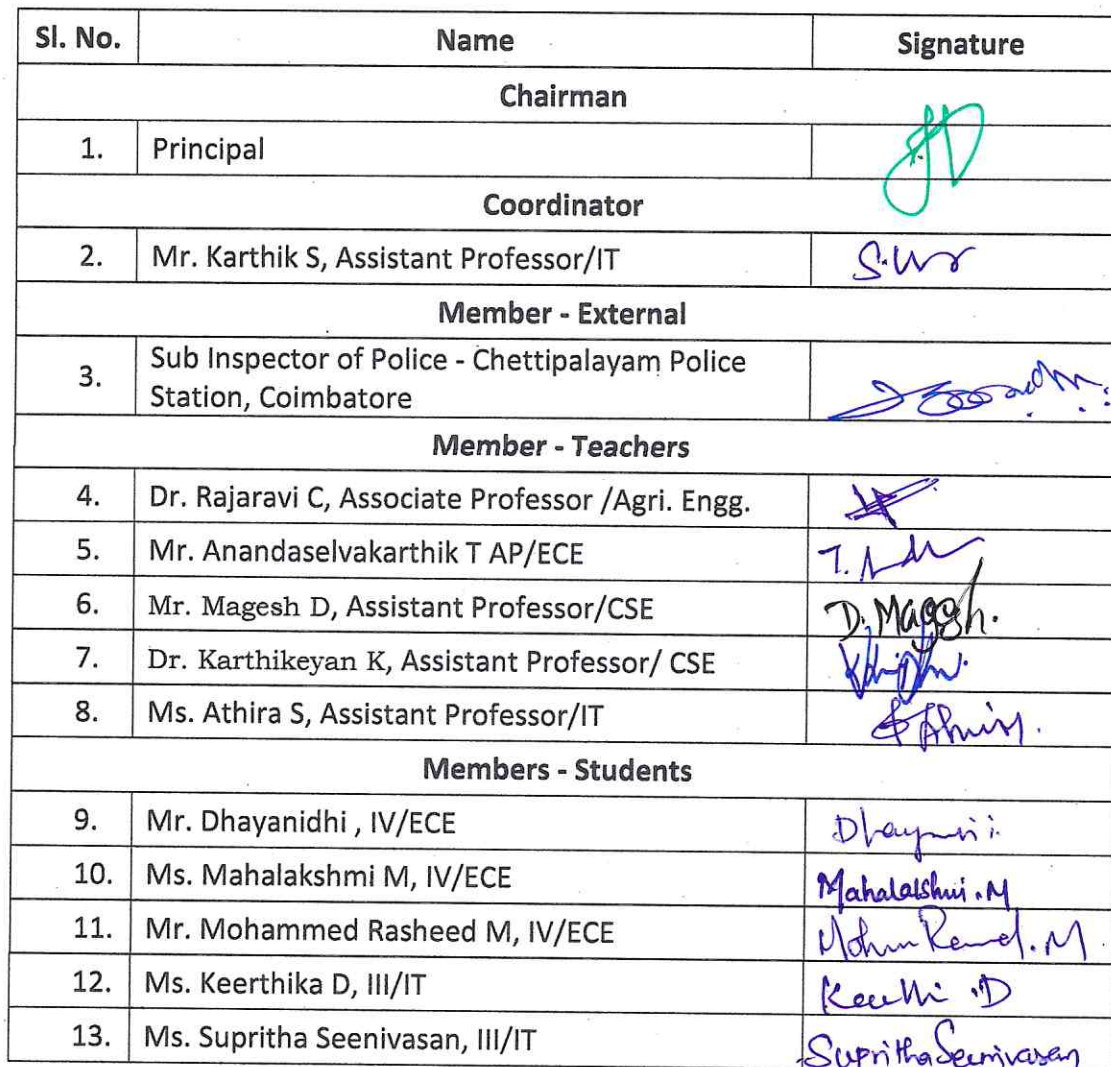 Sl. No. Name Signature
Chairman
1. Principal
Coordinator
2. Mr. Karthik S, Assistant Professor/IT
Member - External
3. Sub Inspector of Police - Chettipalayam Police
Station, Coimbatore
Member - Teachers
4. Dr. Rajaravi C, Associate Professor /Agri. Engg.
5. Mr. Anandaselvakarthik T AP/ECE
6. Mr. Magesh D, Assistant Professor/CSE D. Magesh.
7. Dr. Karthikeyan K, Assistant Professor/ CSE
8. Ms. Athira S, Assistant Professor/IT
Members - Students
9. Mr. Dhayanidhi , IV/ECE
10. Ms. Mahalakshmi M, IV/ECE Mahalakshmi.M
11. Mr. Mohammed Rasheed M, IV/ECE
12. Ms. Keerthika D, III/IT
13. Ms. Supritha Seenivasan, III/IT Supritha Seenivasan